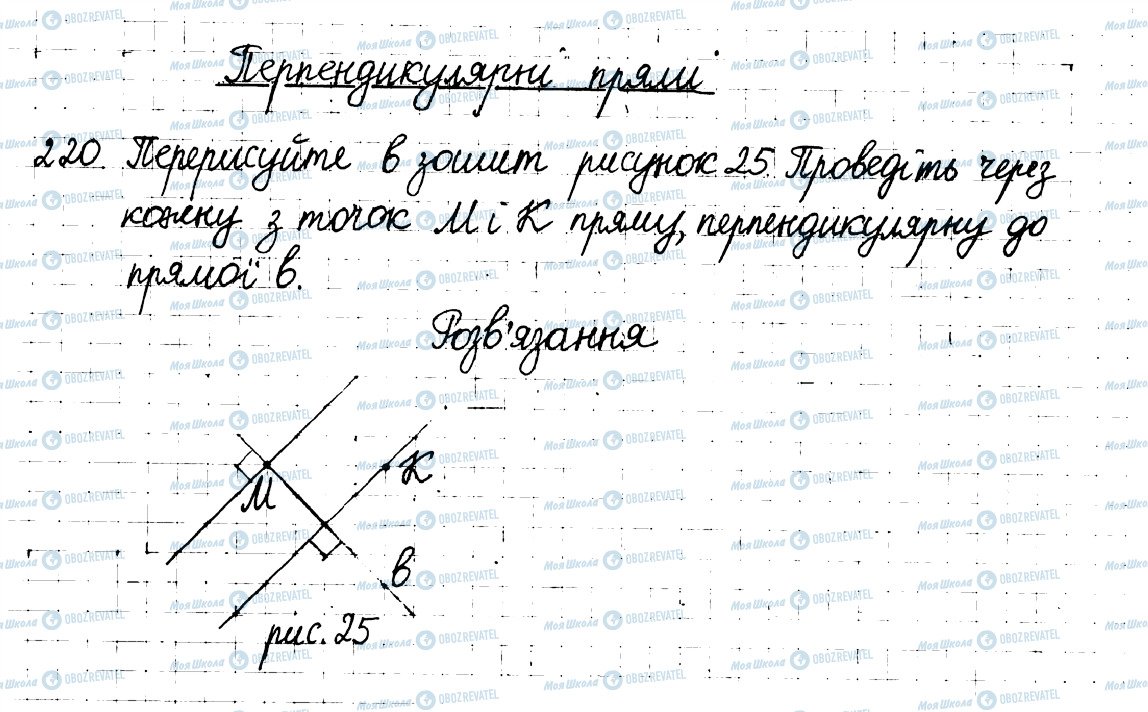 Перпендикулярні прямі
220. Перерисуйте в зошит рисунок 25. Проведіть через
кожну з точок М і К пряму, перпендикулярну до
прямої в.
Розв'язання
К
М
в
рис. 25
Моя Школа OBOZREVATEL